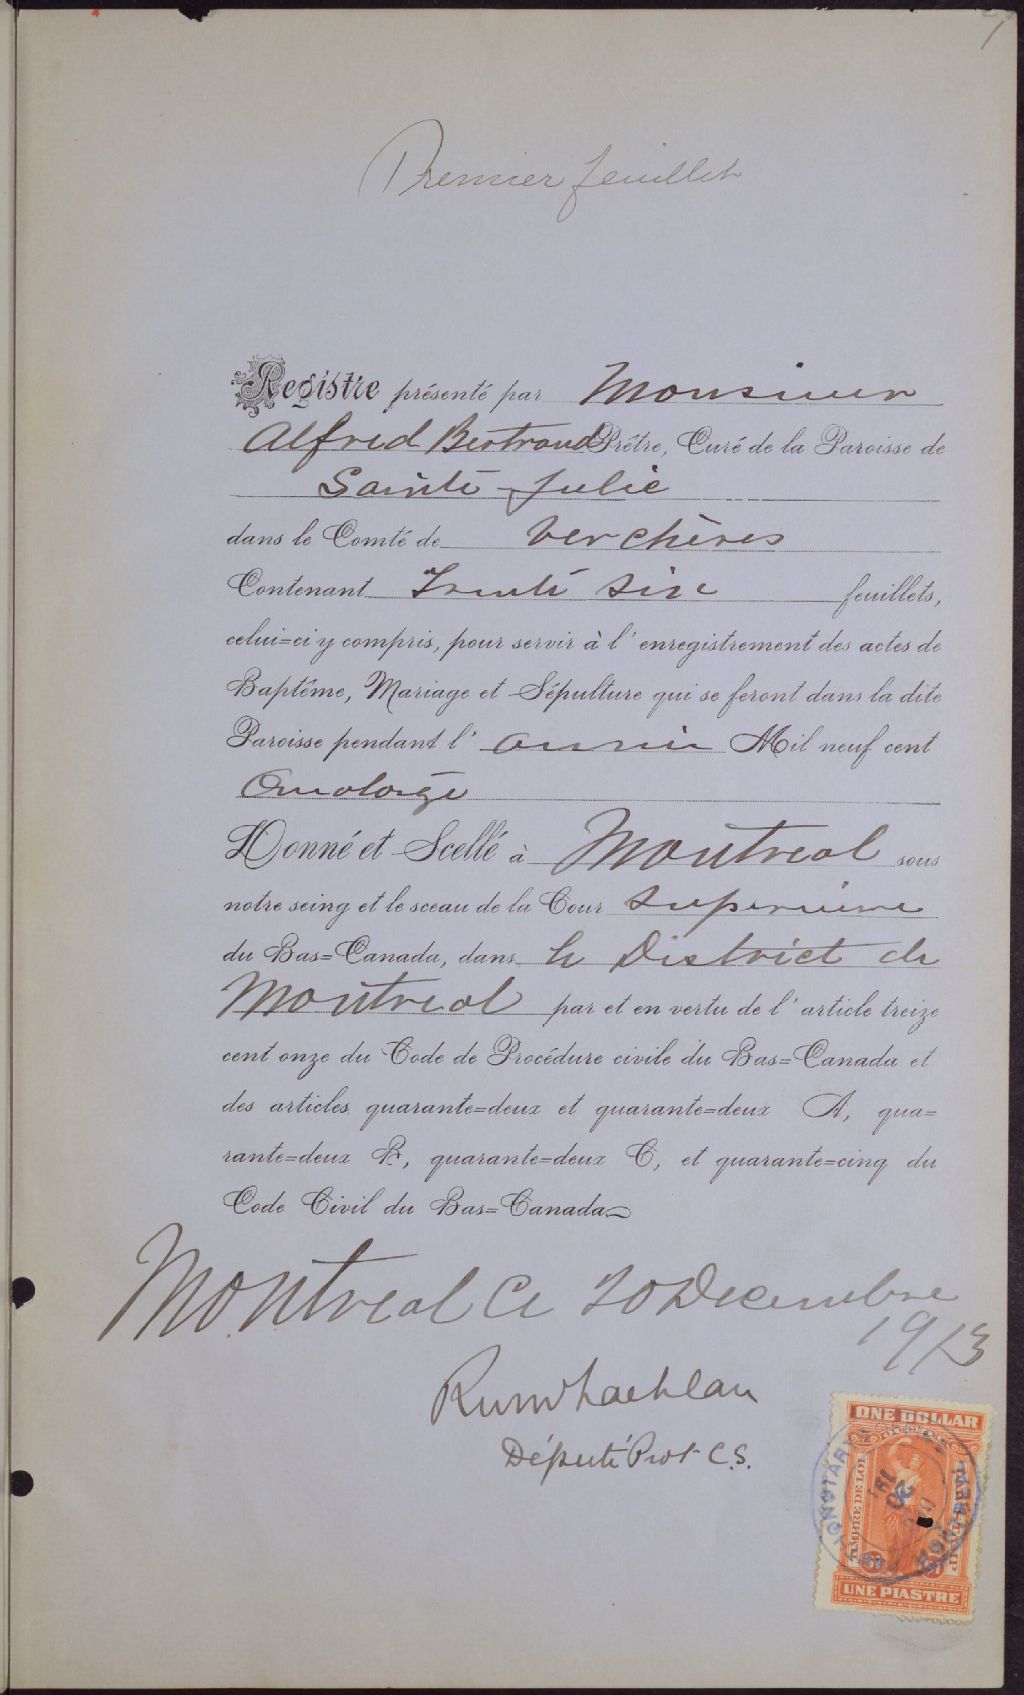 1
Premier feuillet
Registre présenté par Monsieur
Alfred Bertrand Prêtre, Curé de la Paroisse de
Sainte-Julie
dans le Comté de Verchères
Contenant Trente six feuillets,
celui=ci y compris, pour servir à l'enregistrement des actes de
Baptême, Mariage et Sépulture qui se feront dans la dite
Paroisse pendant l'année Mil neuf cent
Quatorze
Donné et Scellé à Montreal sous
notre seing et le sceau de la Cour Superieure
du Bas=Canada, dans le District de
Montreal par et en vertu de l'article treize
cent onze du Code de Procédure civile du Bas=Canada et
des articles quarante=deux et quarante=deux A, qua=
rante=deux B, quarante=deux C, et quarante=cinq du
Code Civil du Bas=Canada
Montreal Ce 20 Decembre
1913
Député Prot. C.S.
ONE DOLLAR
TIMBRE DE LOI
UNE PIASTRE